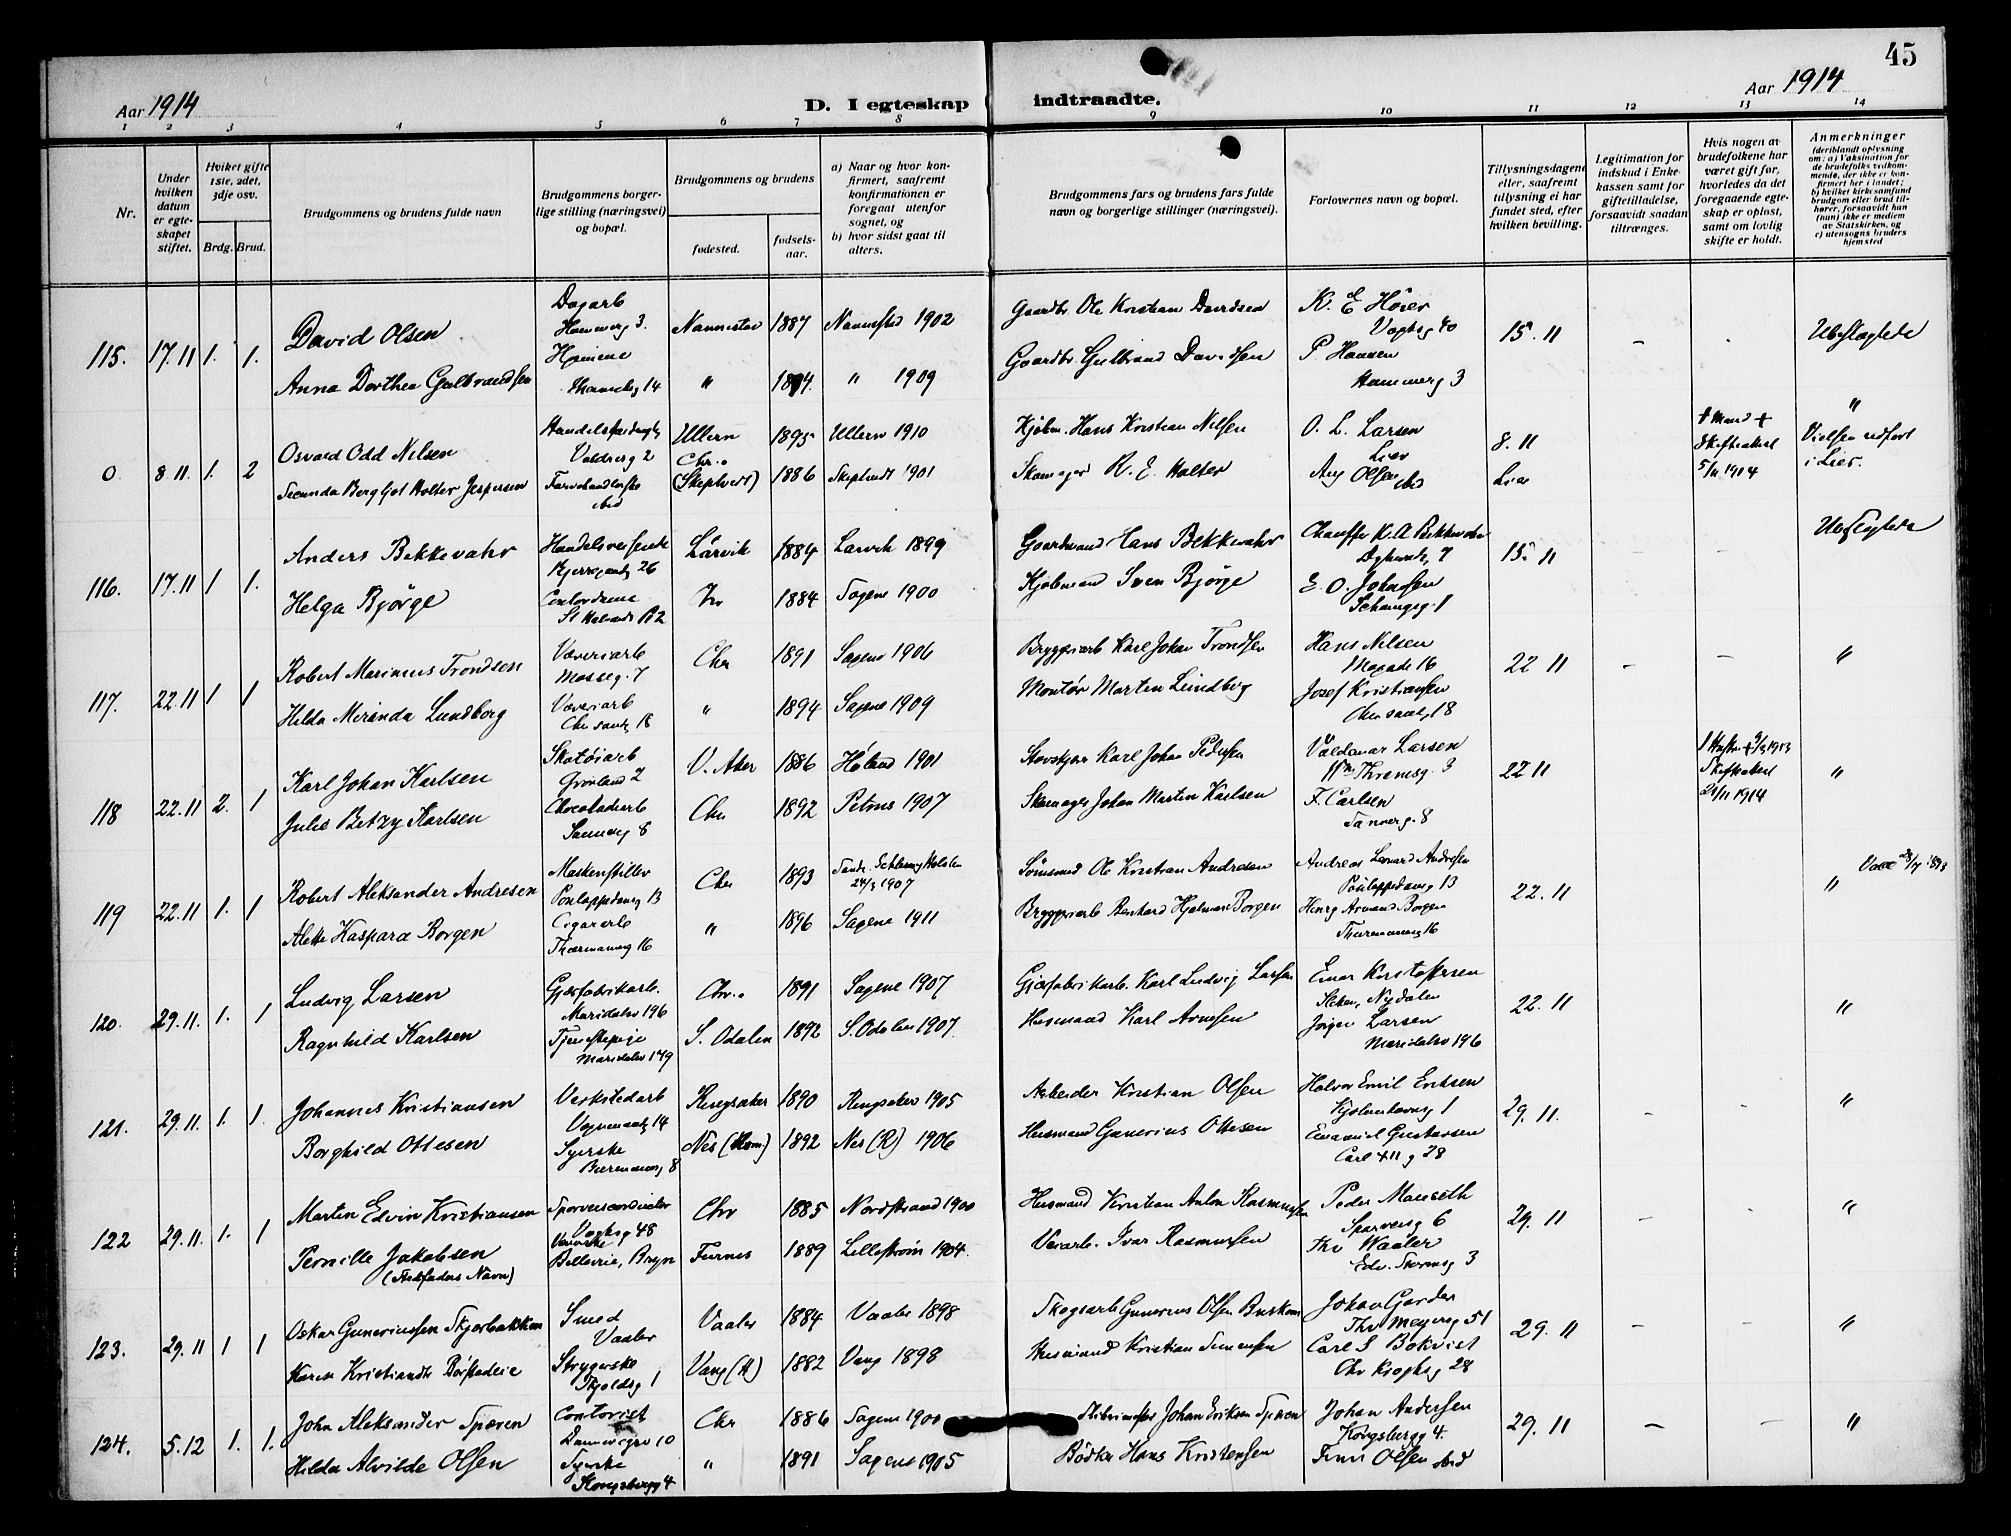 45
Aar 1914
D. I egteskap indtraadte.
Aar 1914
1 2 3 4 5 6 7 8 9 10 11 12 13 14
Nr.
Under hvilken datum er egteskapet stiftet.
Hvilket gifte 1ste, 2det, 3dje osv.
Brdg. Brud.
Brudgommens og brudens fulde navn
Brudgommens borgerlige stilling (næringsvei) og bopæl.
Brudgommens og brudens
fødested.
fødselsaar.
a) Naar og hvor konfirmert, saafremt konfirmationen er foregaat utenfor sognet, og
b) hvor sidst gaat til alters.
Brudgommens fars og brudens fars fulde navn og borgerlige stillinger (næringsvei).
Forlovernes navn og bopæl.
Tillysningsdagene eller, saafremt tillysning ei har fundet sted, efter hvilken bevilling.
Legitimation for indskud i Enkekassen samt for giftetilladelse, forsaavidt saadan tiltrænges.
Hvis nogen av brudefolkene har været gift før, hvorledes da det foregaaende egteskap er opløst, samt om lovlig skifte er holdt.
Anmerkninger (deriblandt oplysning om: a) Vaksination for de brudefolks vedkommende, der ikke er konfirmert her i landet; b) hvilket kirkesamfund brudgom eller brud tilhører, forsaavidt han (hun) ikke er medlem av Statskirken, og c) utensogns bruders hjemsted
115. 17.11 1. 1. David Olsen Dagarb Hammerg 3. Nannestad 1887 Nannestad 1902 Gaardbr. Ole Kristian Davidsen K. E Höier Vogtsg 40 15. 11 - . Ubeslegtede
Anna Dorthea Gulbrandsen Hjemme 14 " 1894. " 1909 Gaardbr. Gulbrand Davidsen P Hansen Hammerg 3
0 8 11. 1. 2 Osvald Odd Nilsen Valdresg 2 Ullern 1895 Ullern 1910 Kjøbm. Hans Kristian Nilsen O. L. Larsen Lier 8. 11 Lier Skifteattest 5/11 1914 " Vielsen utført i Lier.
Secunda Bergljot Holter Jespersen ibid Chr.a (Skiptvedt) 1886 Skiptvedt 1901 Skomager K. E. Holter Aug Olsen ibid
116. 17.11 1 1. Anders Bekkevahr Handelsreisende 26 Larvik 1884 Larvik 1899 Gaardmand Hans Bekkevahr Chauffør K. A Bekkevahr 7 15. 11 - Ubeslegtede
Helga Bjørge Contordame 1884 Sagene 1900 Kjøbmand Sven Bjørge E. O. Johnsen Schwingsg. 1
117. 22.11 1 1 Robert Marinius Trondsen Væveriarb Mosseg. 7 Chr 1891 Sagene 1906 Bryggeriarb Karl Johan Trondsen Hans Nilsen 16 22 11 - - "
Hilda Miranda Lundberg Væveriarb 18 " 1894 Sagene 1909 Montør Marten Lundberg Josef Kristiansen 18
118 22.11 2. 1 Karl Johan Karlsen Skotøiarb Grønland 2 V. Aker 1886 Høland 1901 Karl Johan Pedersen Valdemar Larsen Wm Thranesg. 3 22 11 Skifteattest 21/11 1914 "
Julie Betzy Karlsen Chocoladearb Sannerg 8 Chr 1892 Petrus 1907 Skomager Johan Martin Karlsen F. Carlsen Sannerg. 8
119 22.11 1. 1 Robert Aleksander Andresen Maskinstiller 13 Chr 1893 24/3 1907 Sømand Ole Kristian Andresen Andreas Andresen 13 22. 11 "
Alette Kaspara Borgen Cigararb 16 " 1896 Sagene 1911 Bryggeriarb Hjalmar Borgen Henry Borgen 16
120. 29.11. 1. 1 Ludvig Larsen Gjærfabrikarb. Maridalsv 196 Chr.a 1891 Sagene 1907 Gjærfabrikarb. Karl Ludvig Larsen Einar Kristoffersen Nydalen 22. 11 "
Ragnhild Karlsen Tjenestepige Maridalsv 149 S. Odalen 1892 S. Odalen 1907. Husmand Karl Arnesen Jørgen Larsen Maridalsv 196
121. 29.11. 1. 1. Johannes Kristiansen Verkstedarb 14 Ringsaker 1890 Ringsaker 1905 Arbeider Kristian Olsen Halvor Emil Eriksen 1 29. 11. - - "
Borghild Ottesen Syerske 8 Nes 1892 Nes (R) 1906 Husmand Gunerius Ottesen Emanuel Gustavsen 28
122 29.11. 1. 1 Martin Edvin Kristiansen Vogtsg 48 Chr 1885 Nordstrand 1900 Husmand Kristian Anton Rasmussen Peder Mauseth Sparvesg 6 29. 11 - - "
Pernille Jakobsen (Stedfaders Navn) Bryn Furnes 1889 Lillestrøm 1904. Veiarb. Ivar Rasmussen Thv Waaler Edv. Stormsg 3
123. 29.11 1 1 Oskar Gunerinssen Skjærbakken Smed Vaaler Vaaler 1884 Vaaler 1898 Skogsarb Gunerius Olsen Johan Garder Thv Meyersg 51 29. 11 - - "
Karen Kristiansdtr Strygerske Skjoldsg 1 Vang (H) 1882 Vang 1898 Husmand Kristian Simensen Carl S Bökvist Chr Kroghsg 28
124. 5.12 1. 1. John Aleksander Spæren Contorist 10 Chr 1886 Sagene 1900 Johan Eriksen Spæren Johan Andersen Kongsbergg 4. 29. 11 - - "
Hilda Alvilde Olsen Syerske Kongsbergg 4 " 1891 Sagene 1905 Bødker Hans Kristensen Finn Olsen ibid